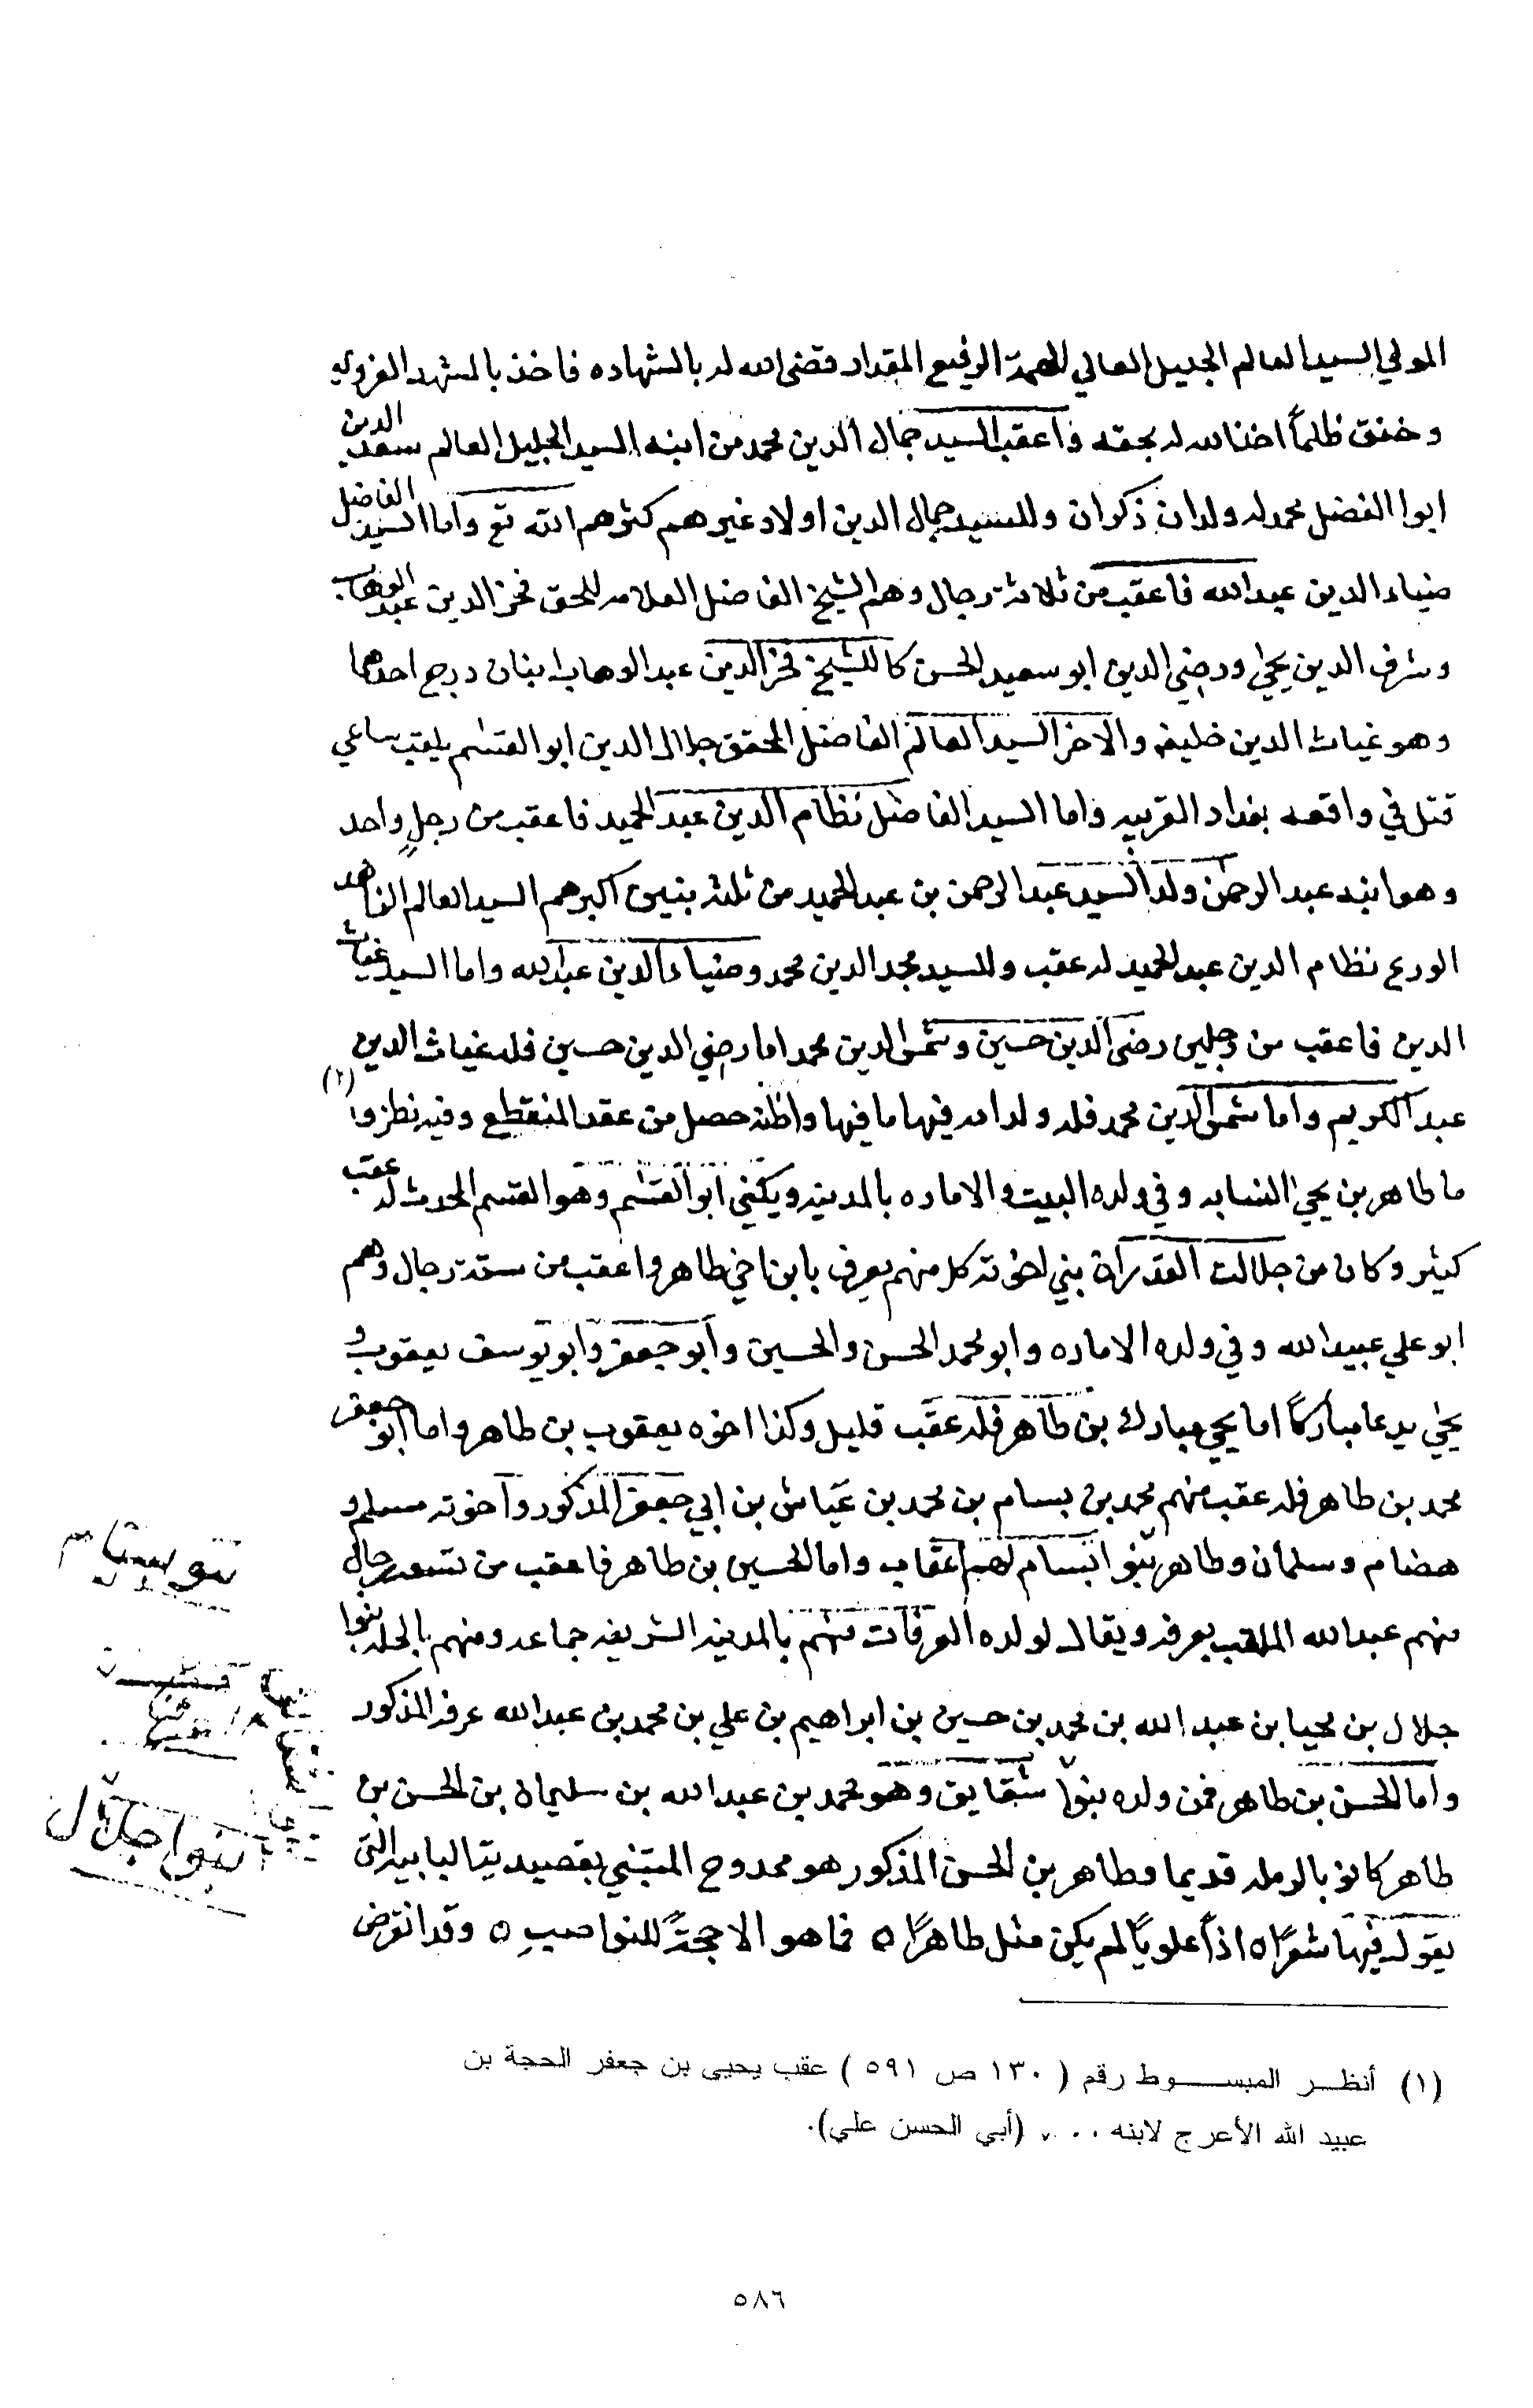 المولي السيد العالم الجليل العالي الهمة الرفيع المقدار قضى الله له بالشهاده فاخذ بالمشهد الغروي
وخنق ظلماً اخذ الله له بحقه واعقب السيد جمال الدين محمد من ابنه السيد الجليل العالم سعد الدين
ابوا الفضل محمد له ولدان ذكران وللسيد جمال الدين اولاد غيرهم كثرهم الله تع واما السيد الفاضل
ضياء الدين عبد الله فاعقب من ثلاثة رجال وهم الشيخ الفاضل العلامه المحقق فخر الدين عبد الوهاب
وشرف الدين يحيى ورضي الدين ابو سعيد الحسن كا للشيخ فخر الدين عبد الوهاب ابنان درج احدهما
وهو غياث الدين خليفه والاخر السيد العالم الفاضل المحقق جلال الدين ابو القسم يلقب ساعي
قتل في واقعه بغداد القريبه واما السيد الفاضل نظام الدين عبد الحميد فاعقب من رجلٍ واحد
وهو ابنه عبد الرحمن ولد السيد عبد الرحمن بن عبد الحميد من ثلثه بنين اكبرهم السيد العالم الزاهد
الورع نظام الدين عبد الحميد له عقب وللسيد مجد الدين محمد وضياء الدين عبد الله واما السيد غياث
الدين فاعقب من رجلين رضى الدين حسين وشمس الدين محمد اما رضي الدين حسين فله غياث الدين
عبد الكريم واما شمس الدين محمد فله ولد امه فيها ما فيها واظنه حصل من عقد المنقطع وفيه نظر وا (١)
ما طاهر بن يحيى النسابه وفي ولده البيت والاماره بالمدينه ويكنى ابو القسم وهو القسم المحدث له عقب
كثير وكان من جلالت القدر ان بني اخوته كل منهم يعرف بابن اخي طاهر واعقب من ستة رجال وهم
ابو علي عبيد الله وفي ولده الاماره وابو محمد الحسن والحسين وابو جعفر وابو يوسف يعقوب و
يحيى يدعا مباركاً اما يحيى مبارك بن طاهر فله عقب قليل وكذا اخوه يعقوب بن طاهر واما ابو جعفر
محمد بن طاهر فله عقب منهم محمد بن بسام بن محمد بن عياش بن ابي جعفر المذكور واخوته مسلم و
هضام وسلمان وطاهر بنوا بسام لهم اعقاب واما الحسين بن طاهر فاعقب من تسعه رجال
منهم عبد الله الملقب بعرفه ويقال لولده العرفات منهم بالمدينه الشريفه جماعه ومنهم بالحله بنوا
جلال بن محيا بن عبد الله بن محمد بن حسين بن ابراهيم بن علي بن محمد بن عبد الله عرفه المذكور
واما الحسن بن طاهر فمن ولده بنوا شقايق وهو محمد بن عبد الله بن سليمان بن الحسن بن
طاهر كانو بالرمله قديما وطاهر بن الحسن المذكور هو ممدوح المتنبي بقصيدته البابيه التى
يقول فيها شعرًا ٥ اذا علويًا لم يكن مثل طاهرًا ٥ فما هو الا حجةً للنواصبِ ٥ وقد انقرض
بنو بسام
بنوا جلال
(١) أنظر المبسوط رقم ( ١٣٠ ص ٥٩١ ) عقب يحيى بن جعفر الحجة بن
عبيد الله الأعرج لابنه . . . (أبي الحسن علي).
٥٨٦